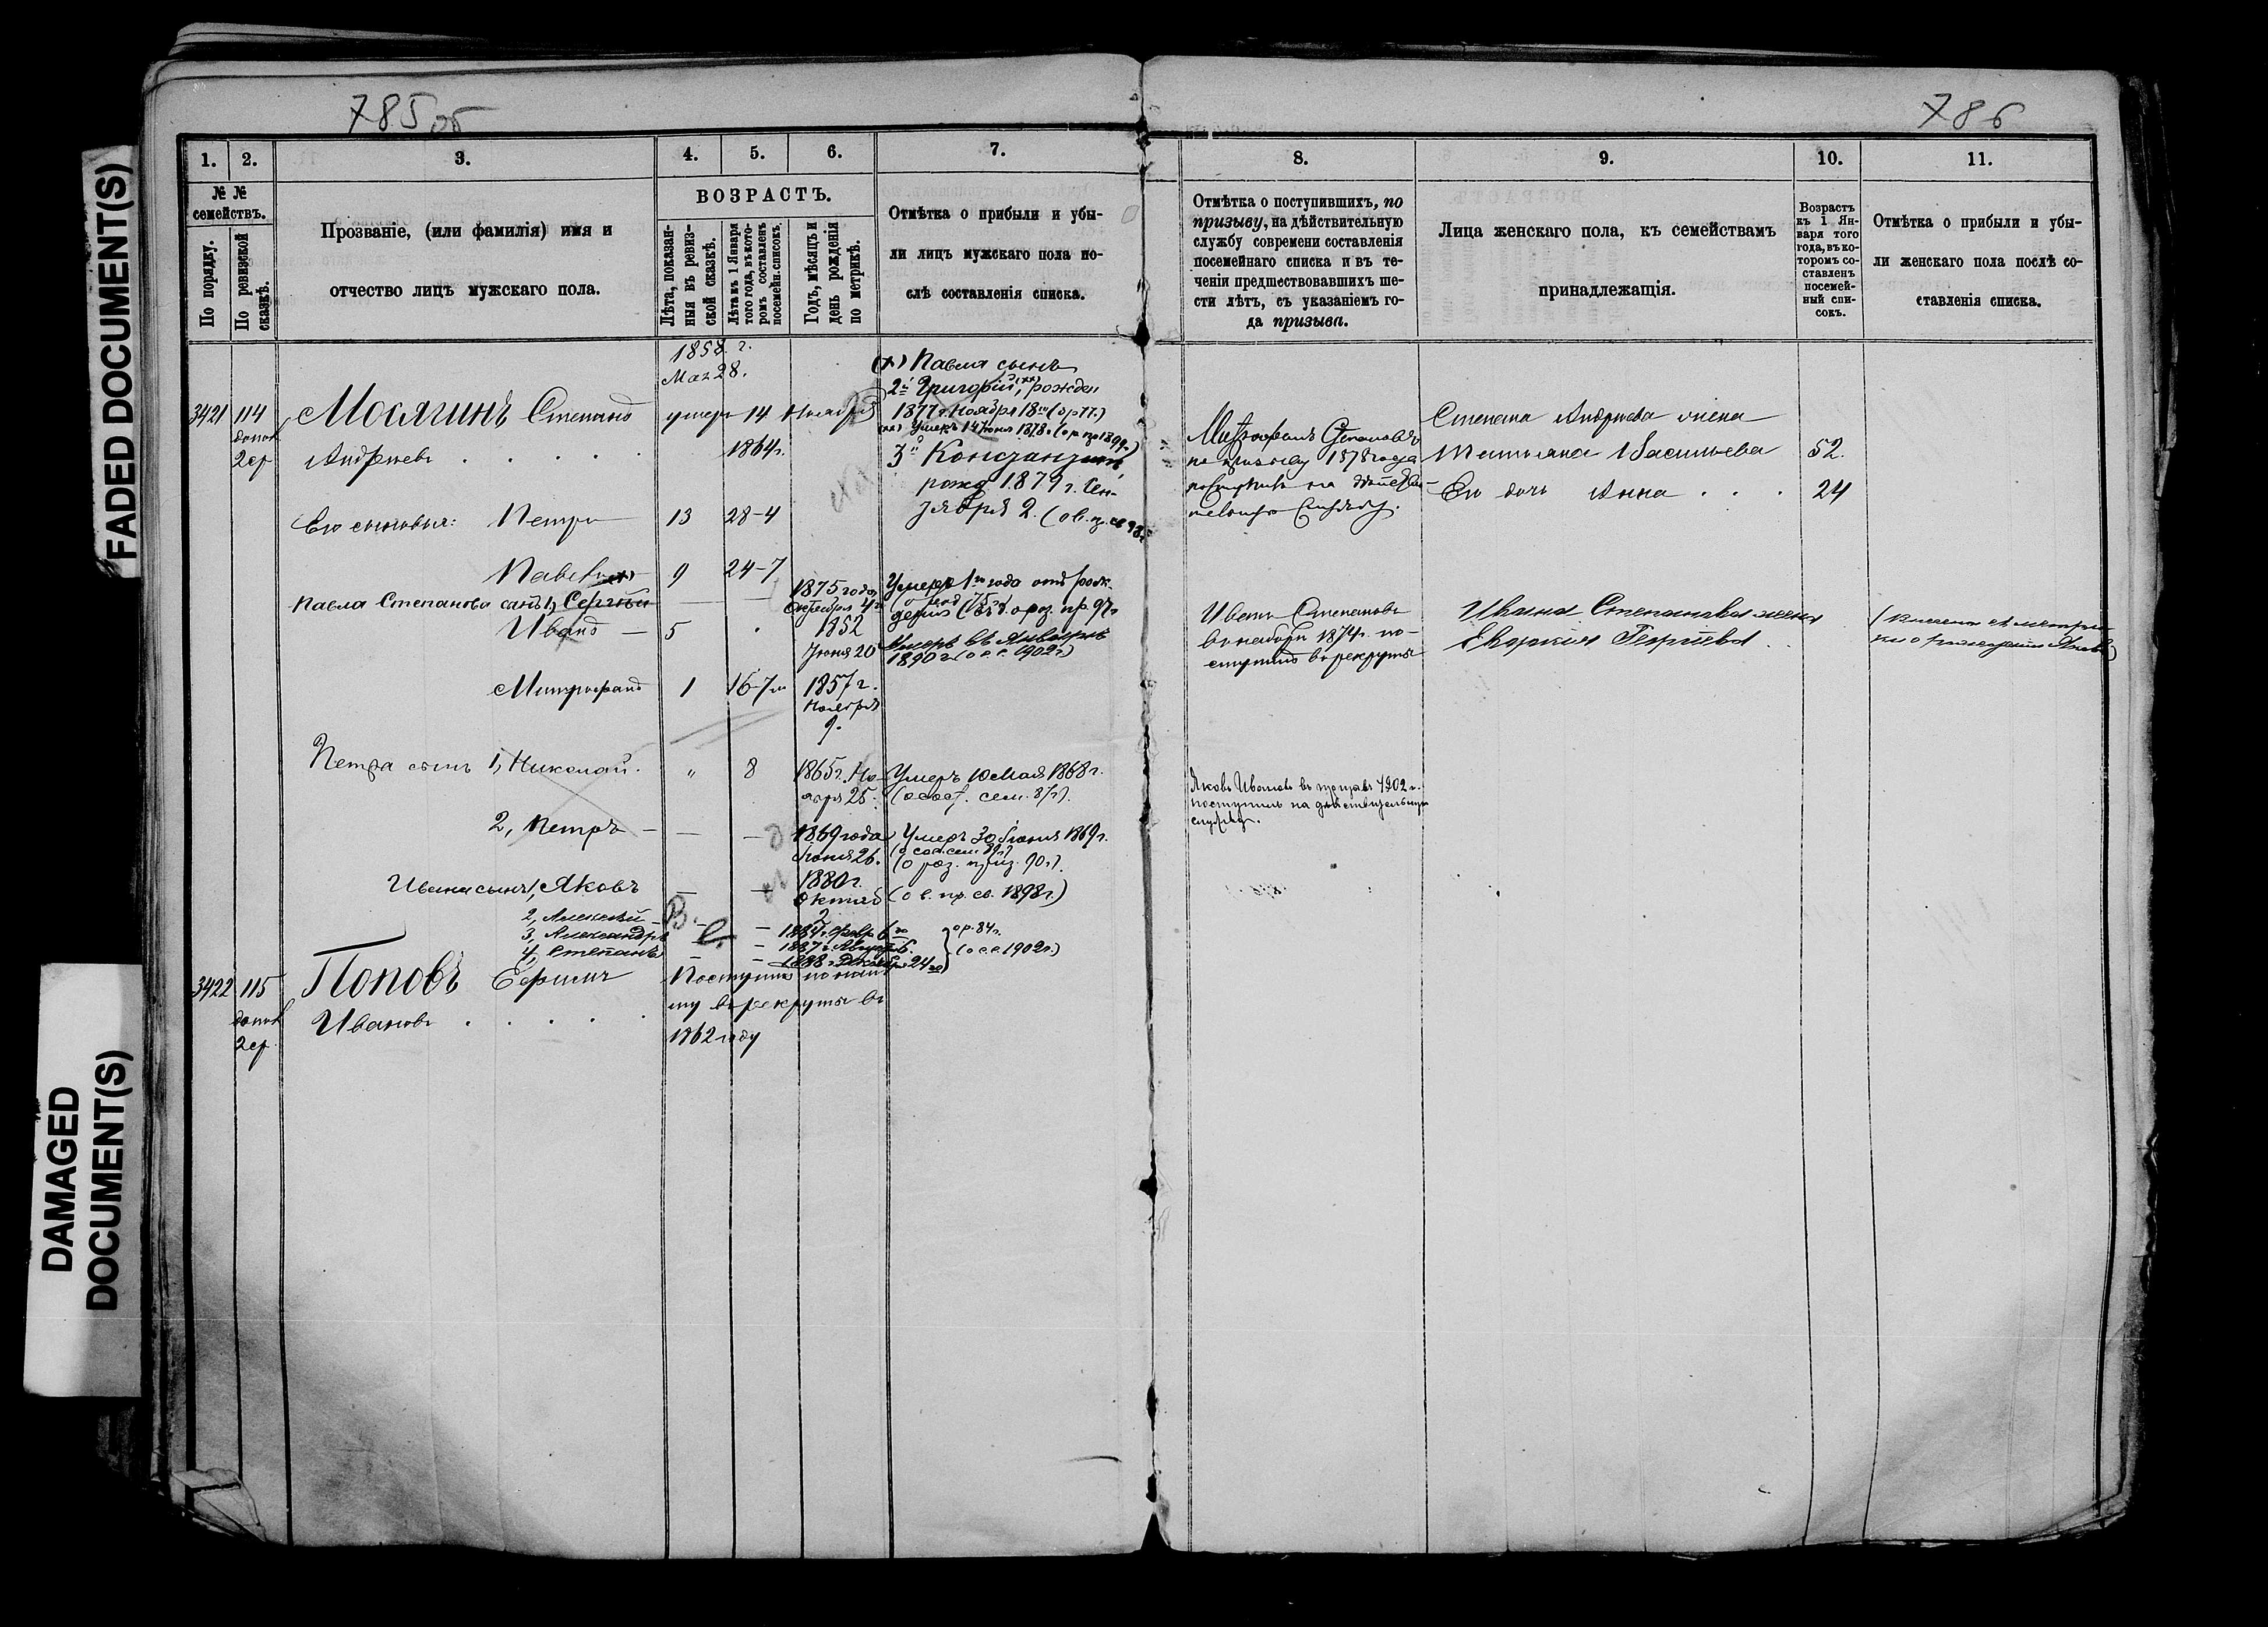 785 об
786
FADED DOCUMENT(S)
DAMAGED DOCUMENT(S)
1. 2. 3. 4. 5. 6. 7. 8. 9. 10. 11.
№ №
семействъ.
По порядку.
По ревизской
сказкѣ.
Прозваніе, (или фамилія) имя и
отчество лицъ мужскаго пола.
ВОЗРАСТЪ.
Лѣта, показан-
ныя въ ревиз-
ской сказкѣ.
Лѣта къ 1 Января
того года, въ кото-
ромъ составленъ
посемейн. списокъ.
Годъ, мѣсяцъ и
день рожденія
по метрикѣ.
Отмѣтка о прибыли и убы-
ли лицъ мужскаго пола по-
слѣ составленія списка.
Отмѣтка о поступившихъ, по
призыву, на дѣйствительную
службу современи составленія
посемейнаго списка и въ те-
ченіи предшествовавшихъ ше-
сти лѣтъ, съ указаніемъ го-
да призыва.
Лица женскаго пола, къ семействамъ
принадлежащія.
Возрастъ
къ 1 Ян-
варя того
года, въ ко-
торомъ со-
ставленъ
посемей-
ный спи-
сокъ.
Отмѣтка о прибыли и убы-
ли женскаго пола послѣ со-
ставленія списка.
1858 г.
Мая 28.
3421 114 Мосягинъ Степанъ умеръ 14 Ноября
допол
2 ср Андреевъ 1864 г.
Его сыновья: Петръ 13 28-4
Павелъ (х) 9 24-7
Павла Степанова сынъ 1, Сергѣй — — 1875 года
Октября 4
Иванъ — 5 1852
Іюня 20
Митрофанъ 1 16-7 1857 г.
Ноября
9.
Петра сынъ 1, Николай. " 8 1865 г. Но-
ября 25.
2, Петръ — — — 1869 года
Іюня 26.
Ивана сынъ 1, Яковъ — — 1880 г.
Октяб
2
2, Алексѣй — — 1884 г. Февр 6
3, Александръ — — 1887 г. Август 6.
4, Степанъ — — 1888 г. Декабря 24
3422 115 Поповъ Ефимъ Поступилъ по найм
допол
2 ср Ивановъ му въ рекруты въ
1862 году
(х) Павла сынъ
2й Григорій, (хх) рожден
1877 г. Ноября 18
(хх) Умеръ 14 Іюня 1878 г.
3й Константинъ
рожд. 1879 г. Сен-
тября 2.
Умеръ 1 года отъ рож-
Умеръ въ Январѣ
1890 г. (о с.с. 1902 г.)
Умеръ 10 Мая 1868 г.
Умеръ 30 Іюня 1869 г.
(о раз. приз. 90 г.)
(о в. пр. св. 1898 г.)
о р. 84 г.
(о с.с. 1902 г.)
Митрофанъ Степановъ
по призыву 1878 года
поступилъ на дѣйстви-
тельную службу.
Иванъ Степановъ
въ ноябрѣ 1874 г. по-
ступилъ въ рекруты
Яковъ Ивановъ въ призывъ 1902 г.
поступилъ на дѣйствительную
службу.
Степана Андреева жена
Татьяна Васильева 52.
Его дочь Анна 24
Ивана Степанова жена
Евдокія